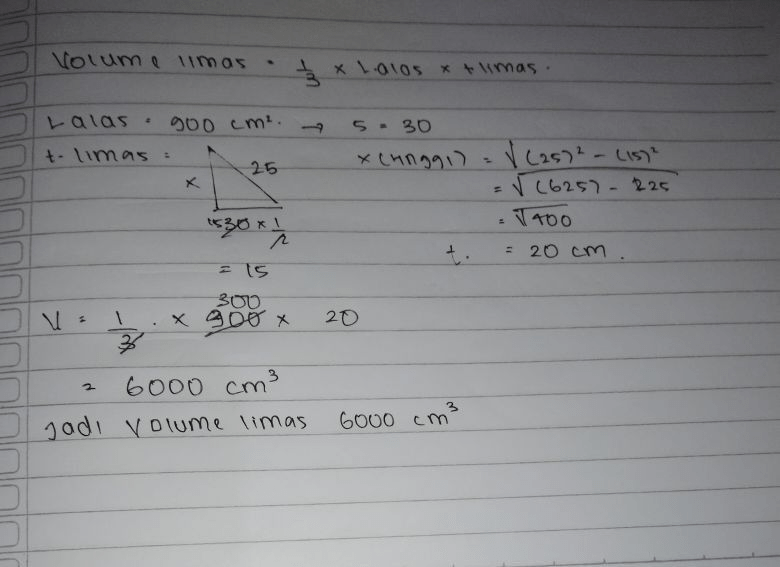 Volume limas = 1/3 × L.alas × t limas.
L alas = 900 cm². → s = 30
t. limas = x 25 x (tinggi) = √(25)² - (15)²
= √(625) - 225
15 30 × 1/2 = √400
= 15 t. = 20 cm.
300
V = 1/3 . × 900 × 20
= 6000 cm³
Jadi Volume limas 6000 cm³